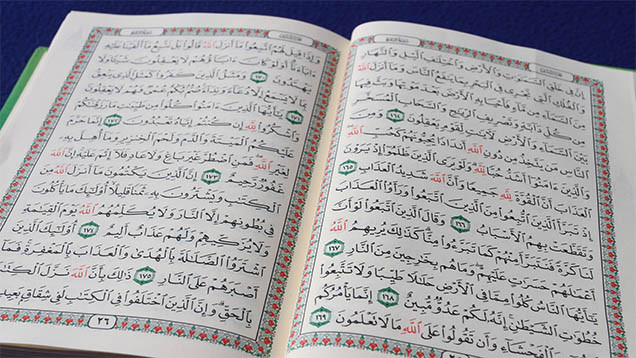 إِنَّ فِى خَلْقِ ٱلسَّمَٰوَٰتِ وَٱلْأَرْضِ وَٱخْتِلَٰفِ ٱلَّيْلِ وَٱلنَّهَارِ
وَٱلْفُلْكِ ٱلَّتِى تَجْرِى فِى ٱلْبَحْرِ بِمَا يَنفَعُ ٱلنَّاسَ وَمَآ أَنزَلَ ٱللَّهُ
مِنَ ٱلسَّمَآءِ مِن مَّآءٍ فَأَحْيَا بِهِ ٱلْأَرْضَ بَعْدَ مَوْتِهَا وَبَثَّ فِيهَا
مِن كُلِّ دَآبَّةٍ وَتَصْرِيفِ ٱلرِّيَٰحِ وَٱلسَّحَابِ ٱلْمُسَخَّرِ
بَيْنَ ٱلسَّمَآءِ وَٱلْأَرْضِ لَءَايَٰتٍ لِّقَوْمٍ يَعْقِلُونَ ١٦٤ وَمِنَ
ٱلنَّاسِ مَن يَتَّخِذُ مِن دُونِ ٱللَّهِ أَندَادًا يُحِبُّونَهُمْ كَحُبِّ ٱللَّهِ
وَٱلَّذِينَ ءَامَنُوٓا۟ أَشَدُّ حُبًّا لِّلَّهِ وَلَوْ يَرَى ٱلَّذِينَ ظَلَمُوٓا۟ إِذْ يَرَوْنَ
ٱلْعَذَابَ أَنَّ ٱلْقُوَّةَ لِلَّهِ جَمِيعًا وَأَنَّ ٱللَّهَ شَدِيدُ ٱلْعَذَابِ ١٦٥
إِذْ تَبَرَّأَ ٱلَّذِينَ ٱتُّبِعُوا۟ مِنَ ٱلَّذِينَ ٱتَّبَعُوا۟ وَرَأَوُا۟ ٱلْعَذَابَ
وَتَقَطَّعَتْ بِهِمُ ٱلْأَسْبَابُ ١٦٦ وَقَالَ ٱلَّذِينَ ٱتَّبَعُوا۟ لَوْ أَنَّ
لَنَا كَرَّةً فَنَتَبَرَّأَ مِنْهُمْ كَمَا تَبَرَّءُوا۟ مِنَّا كَذَٰلِكَ يُرِيهِمُ ٱللَّهُ
أَعْمَٰلَهُمْ حَسَرَٰتٍ عَلَيْهِمْ وَمَا هُم بِخَٰرِجِينَ مِنَ ٱلنَّارِ ١٦٧
يَٰٓأَيُّهَا ٱلنَّاسُ كُلُوا۟ مِمَّا فِى ٱلْأَرْضِ حَلَٰلًا طَيِّبًا وَلَا تَتَّبِعُوا۟
خُطُوَٰتِ ٱلشَّيْطَٰنِ إِنَّهُۥ لَكُمْ عَدُوٌّ مُّبِينٌ ١٦٨ إِنَّمَا يَأْمُرُكُم
بِٱلسُّوٓءِ وَٱلْفَحْشَآءِ وَأَن تَقُولُوا۟ عَلَى ٱللَّهِ مَا لَا تَعْلَمُونَ ١٦٩
وَإِذَا قِيلَ لَهُمُ ٱتَّبِعُوا۟ مَآ أَنزَلَ ٱللَّهُ قَالُوا۟ بَلْ نَتَّبِعُ مَآ أَلْفَيْنَا عَلَيْهِ
ءَابَآءَنَآ أَوَلَوْ كَانَ ءَابَآؤُهُمْ لَا يَعْقِلُونَ شَيْـًٔا وَلَا
يَهْتَدُونَ ١٧٠ وَمَثَلُ ٱلَّذِينَ كَفَرُوا۟ كَمَثَلِ ٱلَّذِى يَنْعِقُ
بِمَا لَا يَسْمَعُ إِلَّا دُعَآءً وَنِدَآءً صُمٌّۢ بُكْمٌ عُمْىٌ فَهُمْ لَا يَعْقِلُونَ
١٧١ يَٰٓأَيُّهَا ٱلَّذِينَ ءَامَنُوا۟ كُلُوا۟ مِن طَيِّبَٰتِ مَا رَزَقْنَٰكُمْ
وَٱشْكُرُوا۟ لِلَّهِ إِن كُنتُمْ إِيَّاهُ تَعْبُدُونَ ١٧٢ إِنَّمَا حَرَّمَ
عَلَيْكُمُ ٱلْمَيْتَةَ وَٱلدَّمَ وَلَحْمَ ٱلْخِنزِيرِ وَمَآ أُهِلَّ بِهِۦ
لِغَيْرِ ٱللَّهِ فَمَنِ ٱضْطُرَّ غَيْرَ بَاغٍ وَلَا عَادٍ فَلَآ إِثْمَ عَلَيْهِ إِنَّ ٱللَّهَ
غَفُورٌ رَّحِيمٌ ١٧٣ إِنَّ ٱلَّذِينَ يَكْتُمُونَ مَآ أَنزَلَ ٱللَّهُ مِنَ
ٱلْكِتَٰبِ وَيَشْتَرُونَ بِهِۦ ثَمَنًا قَلِيلًا أُو۟لَٰٓئِكَ مَا يَأْكُلُونَ
فِى بُطُونِهِمْ إِلَّا ٱلنَّارَ وَلَا يُكَلِّمُهُمُ ٱللَّهُ يَوْمَ ٱلْقِيَٰمَةِ
وَلَا يُزَكِّيهِمْ وَلَهُمْ عَذَابٌ أَلِيمٌ ١٧٤ أُو۟لَٰٓئِكَ ٱلَّذِينَ
ٱشْتَرَوُا۟ ٱلضَّلَٰلَةَ بِٱلْهُدَىٰ وَٱلْعَذَابَ بِٱلْمَغْفِرَةِ فَمَآ
أَصْبَرَهُمْ عَلَى ٱلنَّارِ ١٧٥ ذَٰلِكَ بِأَنَّ ٱللَّهَ نَزَّلَ ٱلْكِتَٰبَ
بِٱلْحَقِّ وَإِنَّ ٱلَّذِينَ ٱخْتَلَفُوا۟ فِى ٱلْكِتَٰبِ لَفِى شِقَاقٍۭ بَعِيدٍ
٢٦